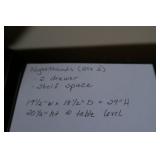 Nightstands (Qty 2)
- 2 drawer
- Shelf space
17 1/2" W x 15 1/2" D x 24" H
20 1/2" H @ table level